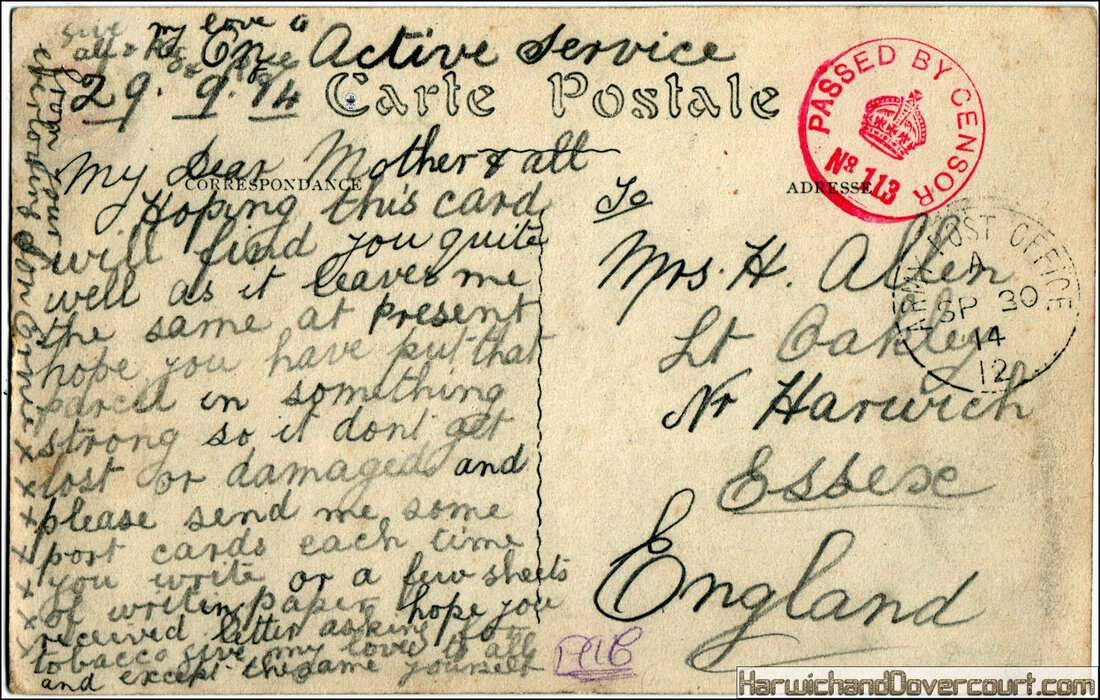 give my love to
all
On Active Service
29.9.14
Carte Postale
PASSED BY CENSOR
No 113
CORRESPONDANCE
ADRESSE
My Dear Mother & all
Hoping this card
will find you quite
well as it leaves me
the same at present
hope you have put that
parcel in something
strong so it dont get
lost or damaged and
please send me some
post cards each time
you write or a few sheets
of writin paper hope you
received letter asking for
tobacco give my love to all
and except the same yourself
from your
everloving son Ernie x
x x x x x x x
To
Mrs. H. Allen
Lt Oakley
Nr Harwich
Essex
England
ARMY POST OFFICE
A
SP 30
14
12
HarwichandDovercourt.com